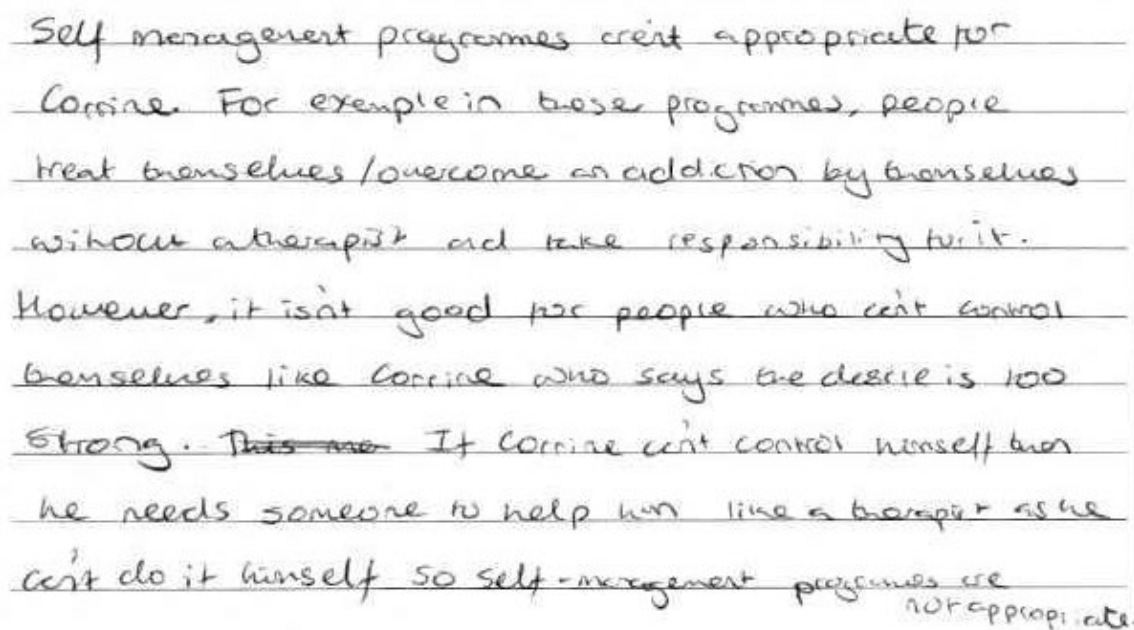 Self management programmes aren't appropriate for
Corrine. For example in these programmes, people
treat themselves / overcome an addiction by themselves
without a therapist and take responsibility for it.
However, it isn't good for people who can't control
themselves like Corrine who says the desire is too
strong. ~~This me~~ If Corrine can't control himself then
he needs someone to help him like a therapist as he
can't do it himself so self-management programmes are
not appropriate.